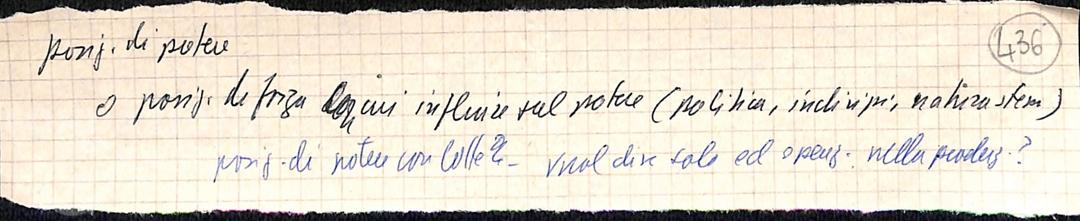 436
posiz. di potere
o posiz. di forza da cui influire sul potere (politica, individui, natura
posiz. di potere con vuol dire solo ed nella produz.?